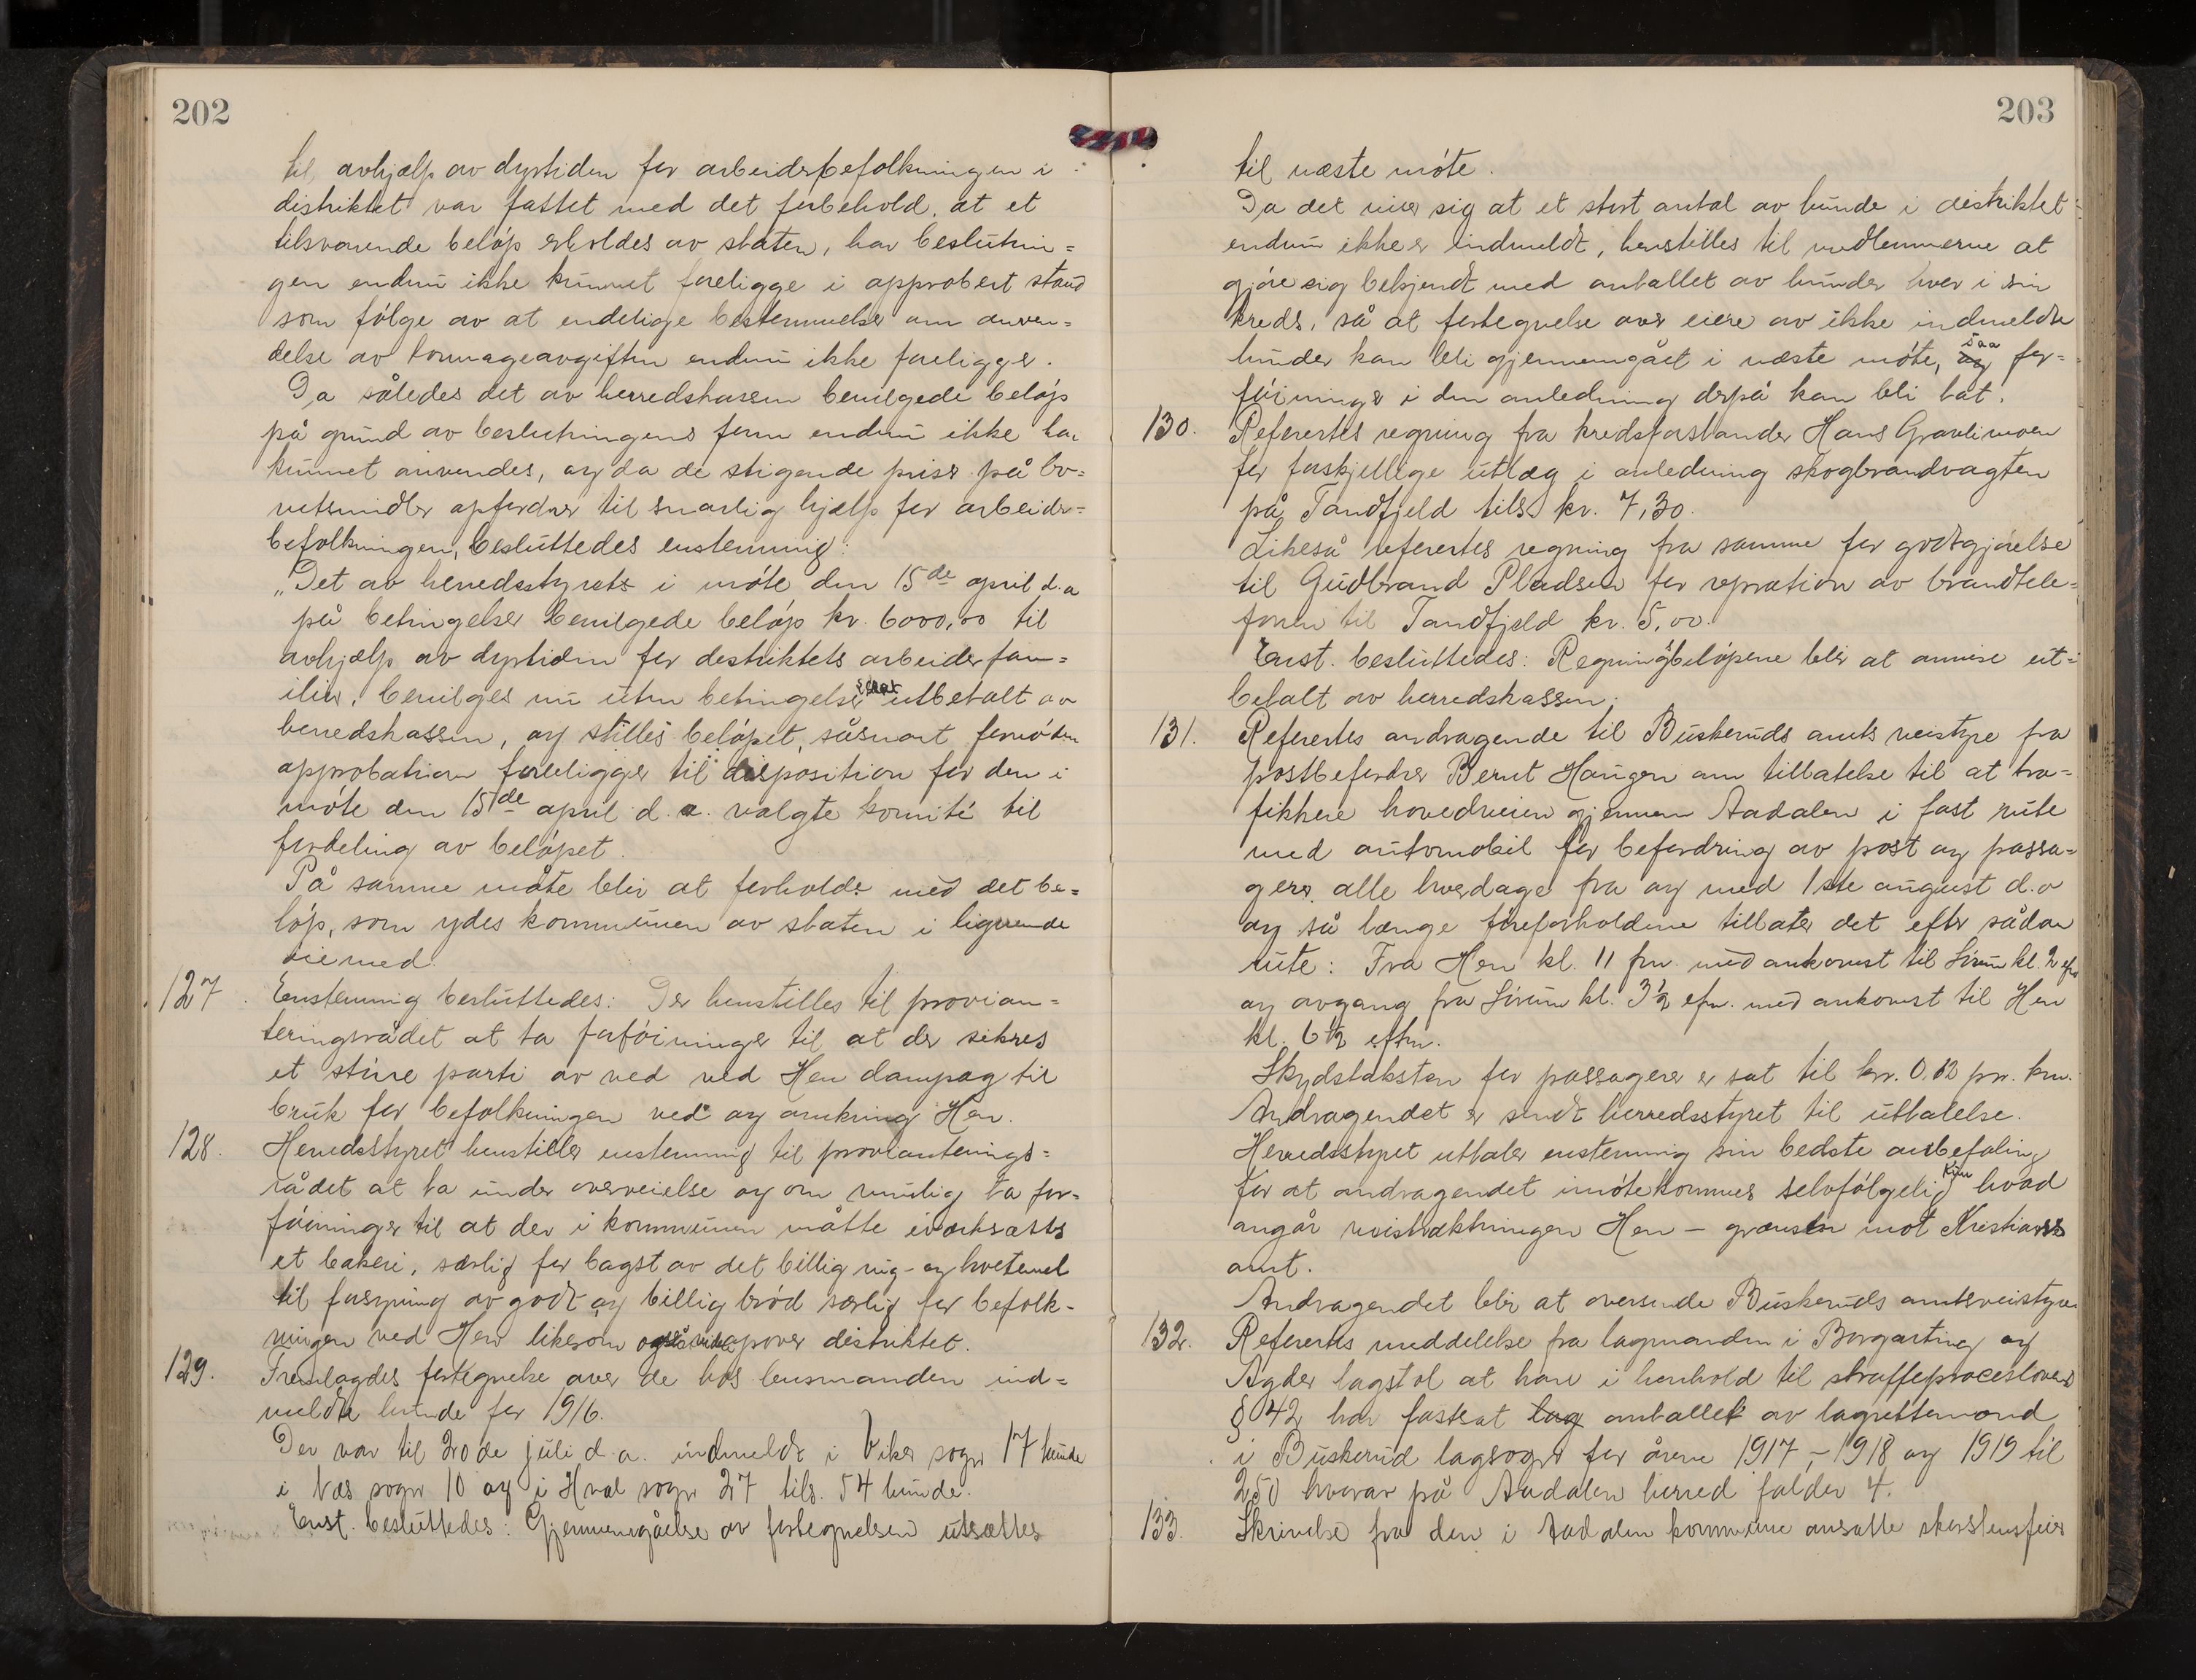 202
til avhjælp av dyrtiden for arbeiderbefolkningen i
distriktet var fattet med det forbehold, at et
tilsvarende beløp erholdes av staten, har beslutnin=
gen endnu ikke kunnet foreligge i approbert stand
som følge av at endelige bestemmelser om anven=
delse av tonnageavgiften endnu ikke foreligger.
Da således det av herredskassen bevilgede beløp
på grund av beslutningens form endnu ikke har
kunnet anvendes, og da de stigende priser på le=
vetsmidler opfordrer til snarlig hjælp for arbeider=
befolkningen, besluttedes enstemmig:
„Det av herredsstyrets i møte den 15de april d.a
på betingelser bevilgede beløp kr. 6000,00 til
avhjælp av dyrtiden for distriktets arbeiderfam=
ilier, bevilges nu uten betingelser straks utbetalt av
herredskassen, og stilles beløpet, såsnart fornøden
approbation foreligger til disposition for den i
møte den 15de april d. a. valgte komité til
fordeling av beløpet.
På samme måte blir at forholde med det be=
løp, som ydes kommunen av staten i lignende
øiemed.
127. Enstemmig besluttedes: Der henstilles til provian=
teringsrådet at ta forføininger til at der sikres
et større parti av ved ved Hen dampsag til
bruk for befolkningen ved og omkring Hen.
128. Herredsstyret henstiller enstemmig til provianterings=
rådet at ta under overveielse og om mulig ta for=
føininger til at der i kommunen måtte iverksættes
et bakeri, særlig for bagst av det billig rug- og hvetemel
til forsyning av godt og billig brød særlig for befolk-
ningen ved Hen likesom også videre opover distriktet.
129. Fremlagdes fortegnelse over de hos lensmanden ind=
meldte hunde for 1916.
Der var til 20de juli d.a. indmeldt i Viker sogn 17 hunde
i Nes sogn 10 og i Hval sogn 27 tils. 54 hunde.
Enst. besluttedes: Gjennemgåelse av fortegnelsen utsættes
203
til næste møte.
Da det viser sig at et stort antal av hunde i distriktet
endnu ikke er indmeldt, henstilles til medlemmerne at
gjøre sig bekjendt med antallet av hunder hver i sin
kreds, så at fortegnelse over eiere av ikke indmeldte
hunder kan bli gjennemgået i næste møte, og saa for=
føininger i den anledning derpå kan bli tat.
130. Referertes regning fra kredsforstander Hans Gravlimoen
for forskjellige utlæg i anledning skogbrandvagten
på Tandfjeld tils. kr. 7,30.
Likeså referertes regning fra samme for godtgjørelse
til Gudbrand Pladsen for repration av brandtele=
fonen til Tandfjeld kr. 5,00.
Enst. besluttedes: Regningsbeløpene blir at anvise ut=
betalt av herredskassen.
131. Referertes andragende til Buskeruds amts veistyre fra
postbefordrer Bernt Haugen om tillatelse til at tra=
fikkere hovedveien gjennem Aadalen i fast rute
med automobil for befordring av post og passa=
gerer alle hverdage fra og med 1ste august d.a
og så længe føreforholdene tillater det efter sådan
rute: Fra Hen kl. 11 fm. med ankomst til Sørum kl. 2 efm
og avgang fra Sørum kl. 3½ efm. med ankomst til Hen
kl. 6½ eftm.
Skydstaksten for passagerer er sat til kr. 0.12 pr. km.
Andragendet er sendt herredsstyret til uttalelse.
Herredsstyret uttaler enstemmig sin bedste anbefaling
for at andragendet imøtekommes selvfølgelig kun hvad
angår veistrækningen Hen – grænsen mot Kristians
amt.
Andragendet blir at oversende Buskeruds amtsveistyre
132. Referertes meddelelse fra lagmanden i Borgarting og
Agder lagstol at han i henhold til straffeproceslovens
§ 42 har fastsat lag antallet av lagrettemænd
i Buskerud lagsogn for årene 1917, – 1918 og 1919 til
250 hvorav på Aadalen herred falder 4.
133. Skrivelse fra den i Aadalen kommune ansatte skorstensfeier